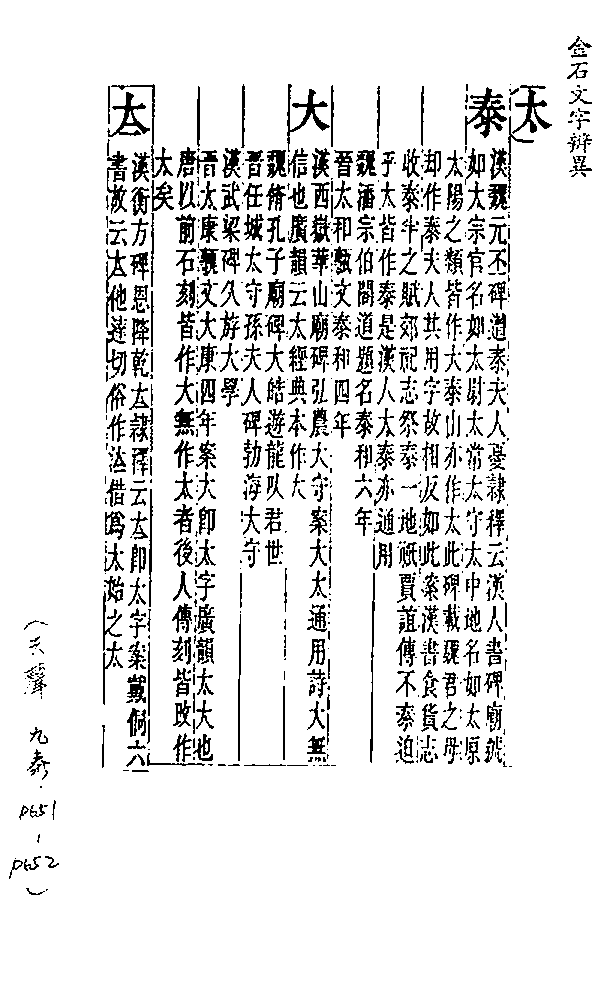 金石文字辨異
太
泰 漢魏元丕碑遭泰夫人憂隷釋云漢人書碑廟號
如大宗官名如太尉太常太守太中地名如太原
太陽之類皆作大泰山亦作太此碑載魏君之母
却作泰夫人其用字故相反如此案漢書食貨志
收泰半之賦郊祀志祭泰一地祇賈誼傳不泰迫
乎太皆作泰是漢人太泰亦通用
魏潘宗伯閣道題名泰和六年
晉太和甎文泰和四年
大 漢西嶽華山廟碑弘農大守案大太通用詩大無
信也廣韻云太經典本作大
魏脩孔子廟碑大皓遊龍以君世
晉任城太守孫夫人碑勃海大守
漢武梁碑久斿大學
晉太康甎文大康四年案大卽太字廣韻太大也
唐以前石刻皆作大無作太者後人傳刻皆改作
太矣
夳 漢衡方碑恩降乾夳隷釋云夳卽太字案戴侗六
書故云夳他達切俗作汏借爲太始之太
（去聲 九泰．p651-p652）